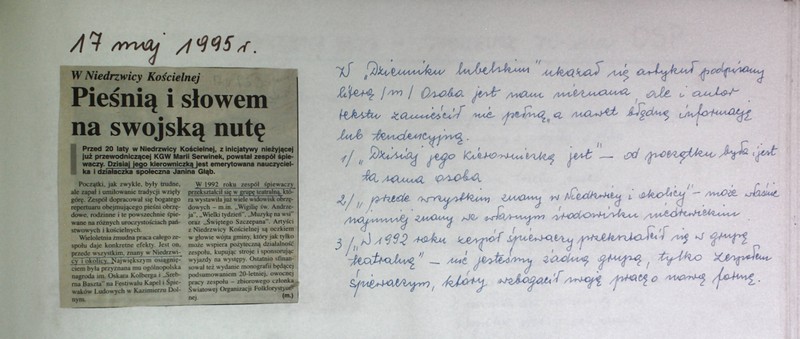 17 maj 1995 r.
W Niedrzwicy Kościelnej
Pieśnią i słowem
na swojską nutę
Przed 20 laty w Niedrzwicy Kościelnej, z inicjatywy nieżyjącej
już przewodniczącej KGW Marii Serwinek, powstał zespół śpie-
waczy. Dzisiaj jego kierowniczką jest emerytowana nauczyciel-
ka i działaczka społeczna Janina Głąb.
Początki, jak zwykle, były trudne,
ale zapał i umiłowanie tradycji wzięły
górę. Zespół dopracował się bogatego
repertuaru obejmującego pieśni obrzę-
dowe, rodzinne i te powszechnie śpie-
wane na różnych uroczystościach pań-
stwowych i kościelnych.
Wieloletnia żmudna praca całego ze-
społu daje konkretne efekty. Jest on,
przede wszystkim, znany w Niedrzwi-
cy i okolicy. Największym osiągnię-
ciem była przyznana mu ogólnopolska
nagroda im. Oskara Kolberga i „Sreb-
rna Baszta” na Festiwalu Kapel i Śpie-
waków Ludowych w Kazimierzu Dol-
nym.
W 1992 roku zespół śpiewaczy
przekształcił się w grupę teatralną, któ-
ra wystawiła już wiele widowisk obrzę-
dowych – m.in. „Wigilię św. Andrze-
ja”, „Wielki tydzień”, „Muzykę na wsi”
oraz „Świętego Szczepana”. Artyści
z Niedrzwicy Kościelnej są oczkiem
w głowie wójta gminy, który jak tylko
może wspiera pożyteczną działalność
zespołu, kupując stroje i sponsorując
wyjazdy na występy. Ostatnio sfinan-
sował też wydanie monografii będącej
podsumowaniem 20-letniej, owocnej
pracy zespołu – zbiorowego członka
Światowej Organizacji Folklorystycznej.
(m.)
W „Dzienniku lubelskim” ukazał się artykuł podpisany
literą /m/ Osoba jest nam nieznana, ale i autor
tekstu zamieścił nie pełną, a nawet błędną informację
lub tendencyjną.
1/ „Dzisiaj jego kierowniczką jest” – od początku była i jest
ta sama osoba
2/ „przede wszystkim znany w Niedrzwicy i okolicy” – może właśnie
najmniej znany we własnym środowisku niedrzwickim
3/ „W 1992 roku zespół śpiewaczy przekształcił się w grupę
teatralną” – nie jesteśmy żadną grupą, tylko zespołem
śpiewaczym, który wzbogacił swoją pracę o nową formę.